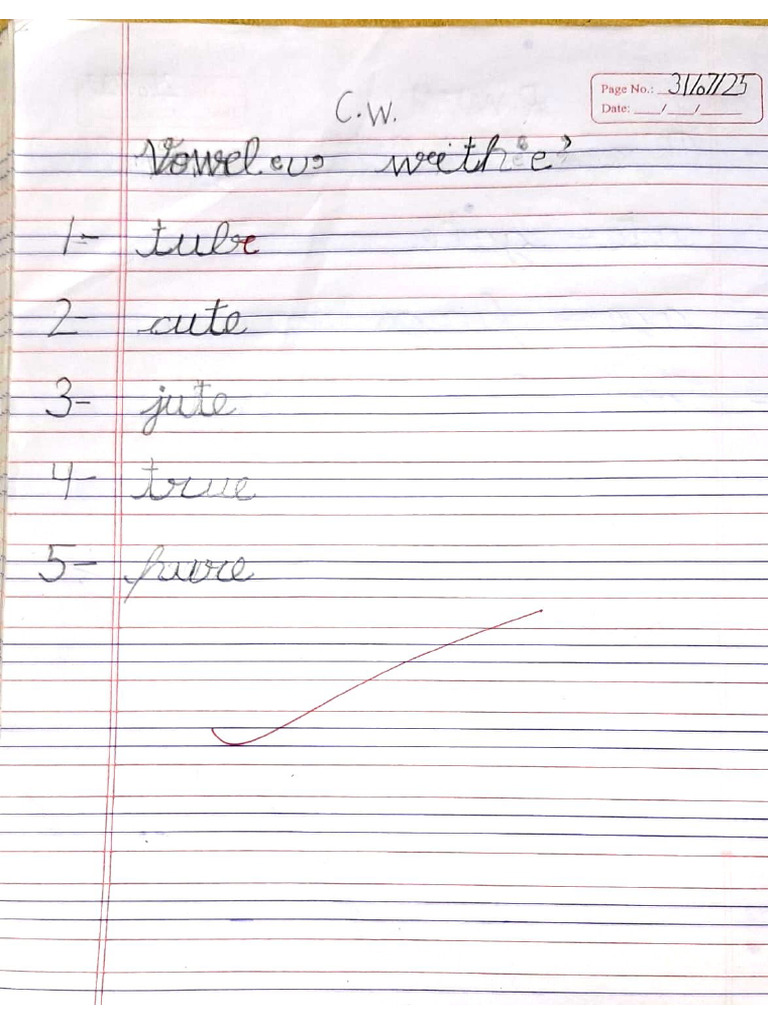 Page No.: 31/07/25
Date: ___/___/______
C.W.
Vowel 'u' with 'e'
1- tube
2- cute
3- jute
4- true
5- pure